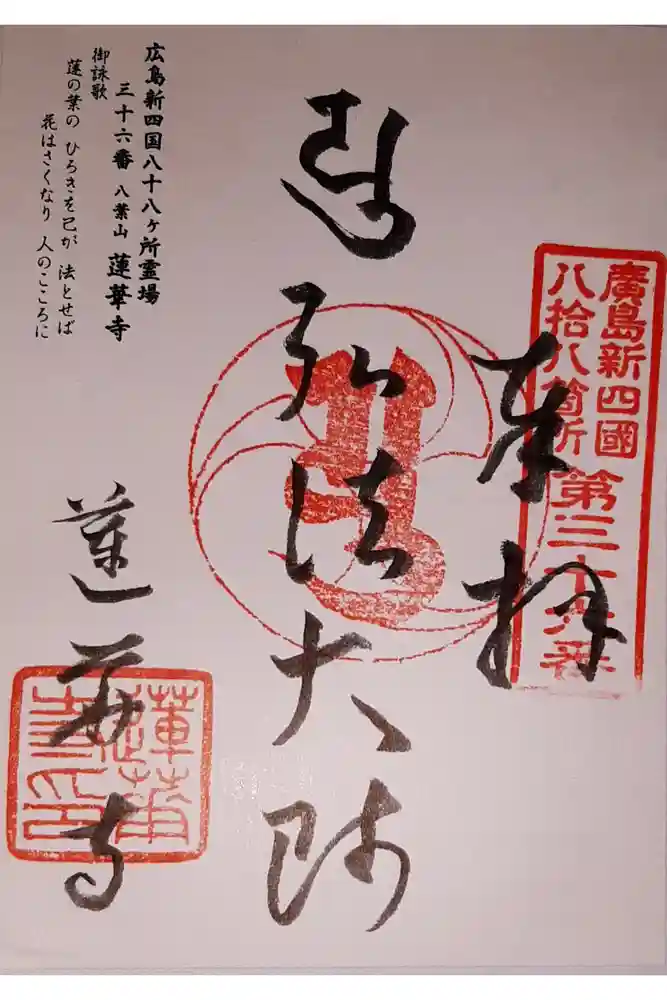 廣島新四國
八拾八箇所 第三十六番
奉拝
弘法大師
広島新四国八十八ヶ所霊場
三十六番 八葉山 蓮華寺
御詠歌
蓮の葉の ひろきを己が 法とせば
花はさくなり 人のこころに
蓮華寺
蓮華
寺印